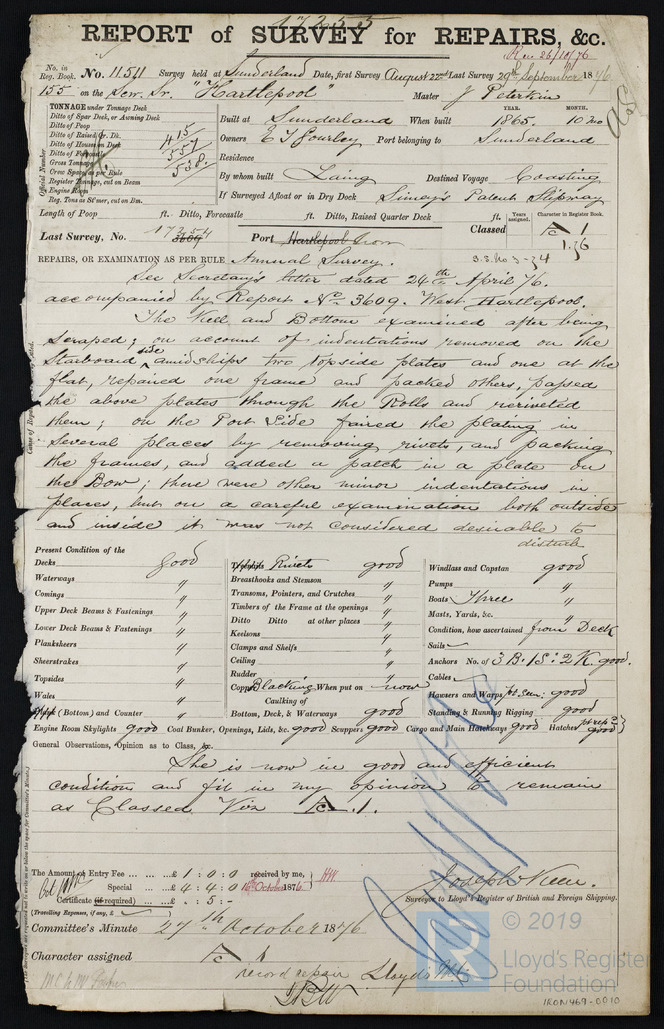 17255
REPORT of SURVEY for REPAIRS, &c.
Rec 26/10/76
No. in Reg. Book. No. 11511 Survey held at Sunderland Date, first Survey August 22nd Last Survey 29th September 1876
155 on the Scw. Sr. "Hartlepool" Master J Peterkin
TONNAGE under Tonnage Deck
Ditto of Spar Deck, or Awning Deck
Ditto of Poop
Ditto of Raised Qr. Dk. 415
Ditto of Houses on Deck
Ditto of Forecastle 557
Gross Tonnage
Crew Space as per Rule 538
Register Tonnage, cut on Beam
Engine Room
Reg. Tons as St'mer, cut on Bm.
Official Number
YEAR. MONTH.
Built at Sunderland When built 1865. 10 mo
Owners E T Gourley Port belonging to Sunderland
Residence
By whom built Laing Destined Voyage Coasting
If Surveyed Afloat or in Dry Dock Simey's Patent Slipway
Length of Poop ft. Ditto, Forecastle ft. Ditto, Raised Quarter Deck ft.
Years assigned. Character in Register Book.
Last Survey, No. 17254 3609 Port Hartlepool Iron Classed A 1
1.76
REPAIRS, OR EXAMINATION AS PER RULE Annual Survey. S.S. No 3-74
See Secretary's letter dated 24th April 76.
accompanied by Report No 3609. West Hartlepool.
The Keel and Bottom examined after being
scraped; on account of indentations removed on the
Starboard side amidships two topside plates and one at the
flat, repaired one frame and packed others, passed
the above plates through the Rolls and reriveted
them; on the Port Side faired the plating in
several places by removing rivets, and packing
the frames, and added a patch in a plate on
the Bow; there were other minor indentations in
places, but on a careful examination both outside
and inside it was not considered desirable to
disturb
Present Condition of the
Decks good
Waterways "
Comings "
Upper Deck Beams & Fastenings "
Lower Deck Beams & Fastenings "
Planksheers "
Sheerstrakes "
Topsides "
Wales "
(Bottom) and Counter "
Rivets good
Breasthooks and Stemson "
Transoms, Pointers, and Crutches "
Timbers of the Frame at the openings "
Ditto Ditto at other places "
Keelsons "
Clamps and Shelfs "
Ceiling "
Rudder "
Copper Blacking When put on now
Caulking of
Bottom, Deck, & Waterways good
Windlass and Capstan good
Pumps "
Boats Three "
Masts, Yards, &c. "
Condition, how ascertained from Deck
Sails
Anchors No. of 3 B: 1 S: 2 K. good.
Cables
Hawsers and Warps pt. seen: good
Standing & Running Rigging good
Engine Room Skylights good Coal Bunker, Openings, Lids, &c. good Scuppers good Cargo and Main Hatchways good Hatches good
General Observations, Opinion as to Class, &c.
She is now in good and efficient
condition and fit in my opinion to remain
as Classed Viz A 1.
The Amount of Entry Fee ... ...£ 1 : 0 : 0 received by me,
Special ... ...£ 4 : 4 : 0 October 1876
Certificate (if required) ... ...£ : 5 : -
(Travelling Expenses, if any, £
Joseph Keen.
Surveyor to Lloyd's Register of British and Foreign Shipping.
Committee's Minute 27th October 1876
Character assigned A 1
record repair Lloyd's M.C.
© 2019
Lloyd's Register
Foundation
IRON469-0010